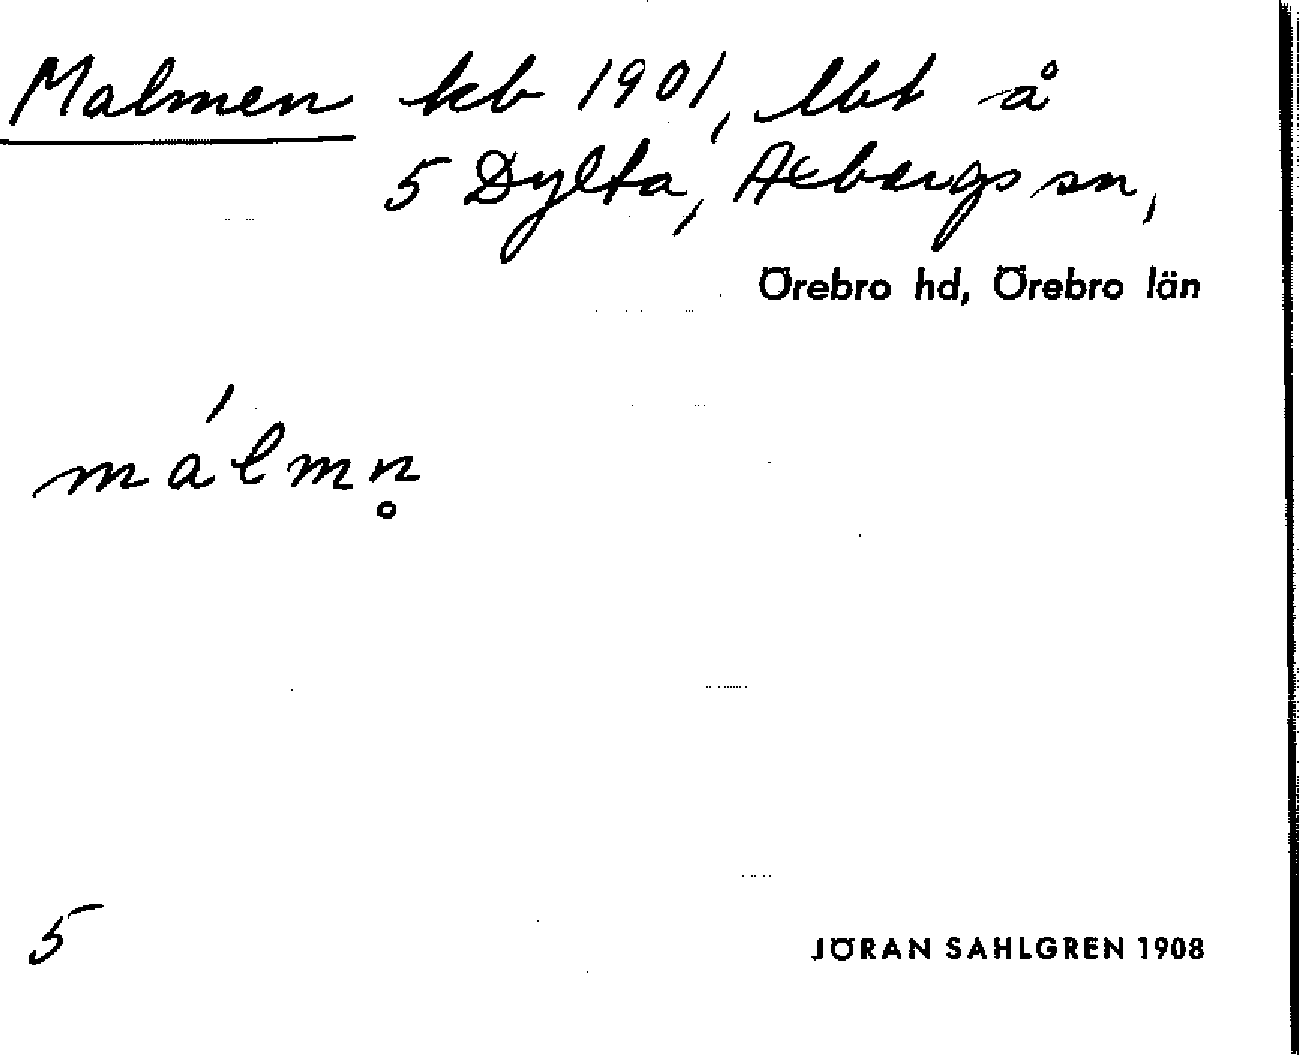 Malmen kb 1901, lbt å
5 Dylta, Axbergs sn,
Örebro hd, Örebro län
málmn̥
5
JÖRAN SAHLGREN 1908